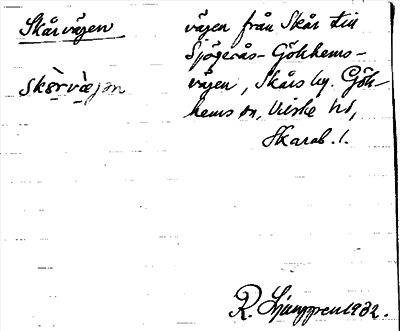 Skårvägen
vägen från Skår till
Sjögerås-Gökhems-
vägen, Skårs by. Gök-
hems sn, Vilske hd,
Skarab. l.
skɛ̀rvæ̀jən
R. Ljunggren 1932.